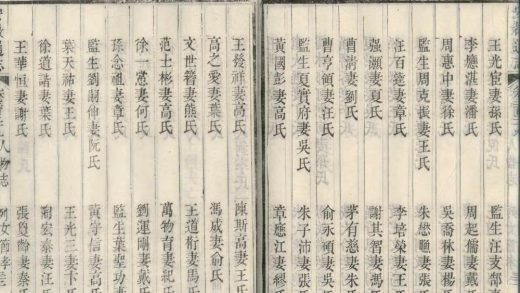 王光宦妻孫氏
監生汪支鄒妻
李應湛妻潘氏
周起儒妻戴
周惠中妻徐氏
吳喬林妻楊
監生周克振妻王氏
朱懋𪫺妻
汪百楚妻章氏
李培榮妻王
强灝妻夏氏
謝其智妻馮
曹清妻劉氏
茅有慈妻朱
曹亨領妻江氏
俞永禎妻吳
監生夏實府妻吳氏
朱子沛妻張
黃國彭妻高氏
章應江妻繆
王發祥妻高氏
陳斯高妻王
高之愛妻葉氏
馮威妻俞氏
文世簪妻熊氏
王道衍妻馬
范士彬妻高氏
萬物育妻祀
徐一憲妻何氏
劉運剛妻戴
孫念祖妻章氏
監生葉聖功妻
監生劉嗣伸妻阮氏
黃守信妻高
葉天祐妻王氏
王光三妻卞
徐道誥妻葉氏
朔宏泰妻汪
王華恒妻謝氏
張貟齡妻秦
人物志
列女節孝三